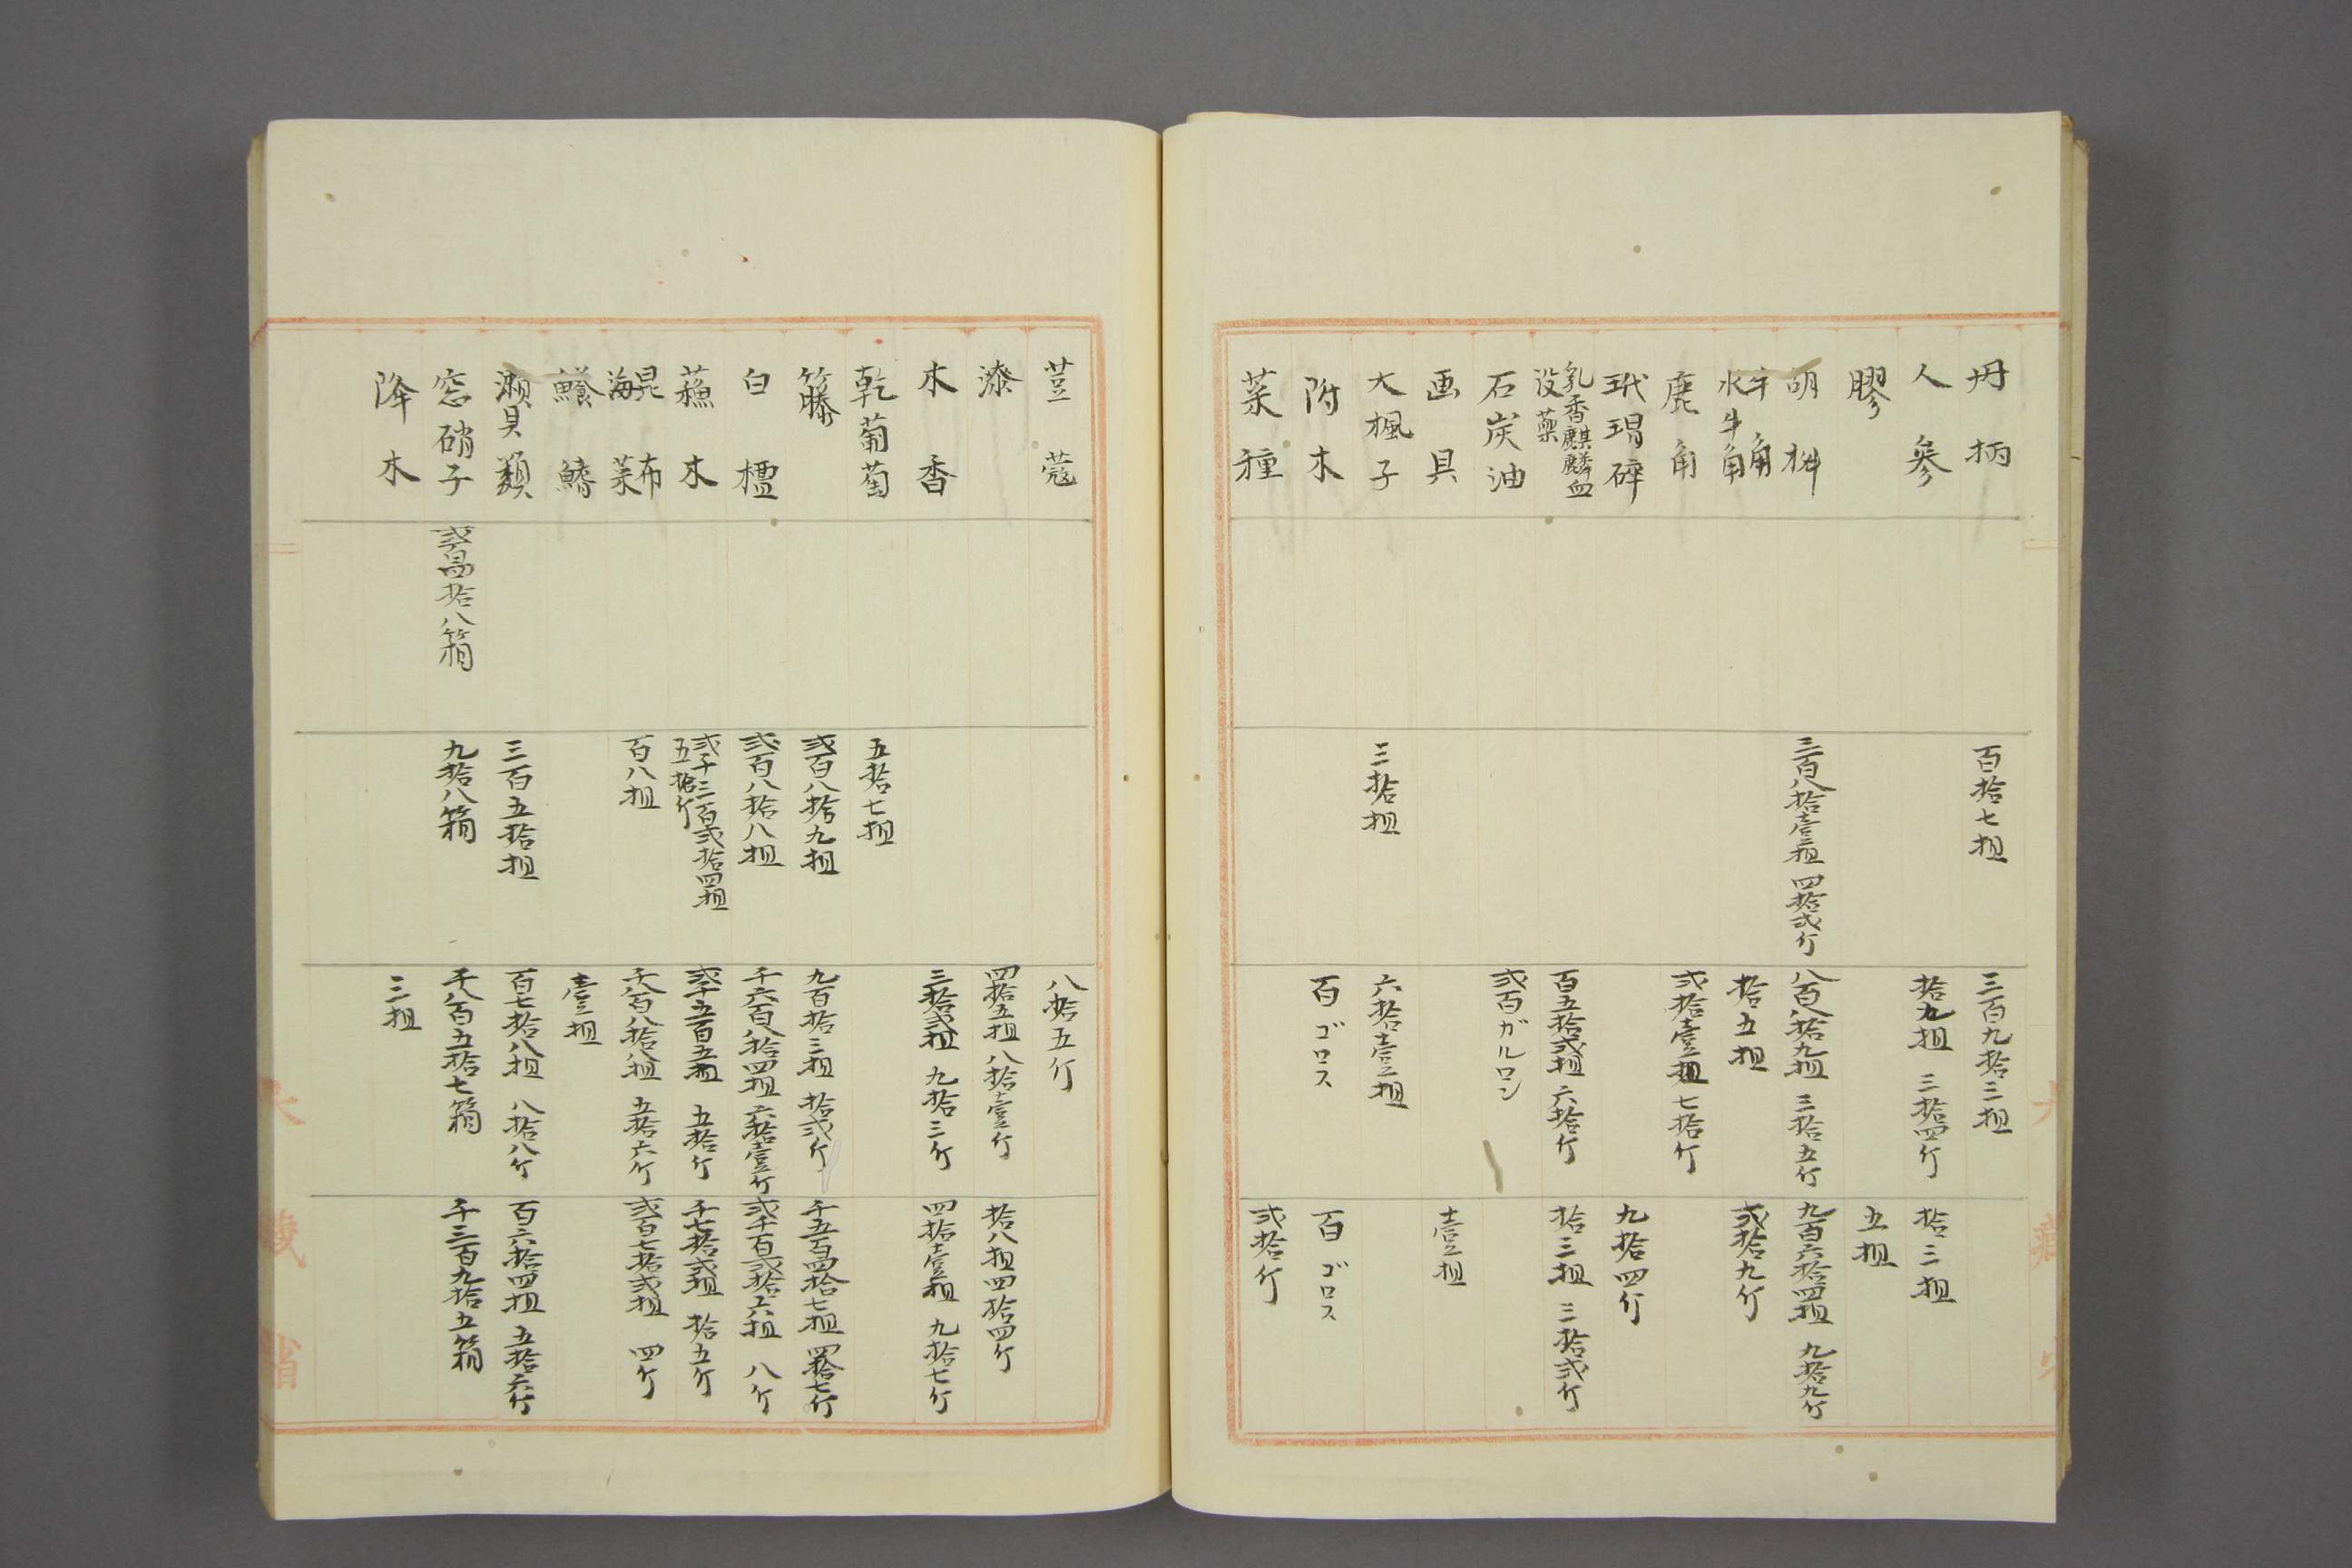 丹柄
百拾七担
三百九拾三担
人參
拾九担 三拾四斤
拾三担
膠
五担
明
三百八拾壹担 四拾弐斤
八百八拾九担 三拾五斤
九百六拾四担 九拾九斤
牛角
水牛角
拾五担
弐拾九斤
鹿角
弐拾壹担 七拾斤
玳瑁碎
九拾四斤
乳香麒麟血
没藥
百五拾弐担 六拾斤
拾三担 三拾弐斤
石炭油
弐百ガルロン
画具
壹担
大楓子
三拾担
六拾壹担
附木
百ゴロス
百ゴロス
菜種
弐拾斤
荳蔻
八拾五斤
漆
四拾五担 八拾壹斤
拾八担 四拾四斤
木香
三拾弐担 九拾三斤
四拾壹担 九拾七斤
乾葡萄
五拾七担
籐
弐百八拾九担
九百拾三担 拾弐斤
千五百四拾七担 四拾七斤
白檀
弐百八拾八担
千六百八拾四担 六拾壹斤
弐千百弐拾六担 八斤
蘓木
弐千三百弐拾四担
五拾斤
弐千五百五担 五拾斤
千七拾弐担 拾五斤
昆布
海菜
百八担
千八百八拾八担 五拾六斤
弐百七拾弐担 四斤
鱶鰭
壹担
瀬貝類
三百五拾担
百七拾八担 八拾八斤
百六拾四担 五拾六斤
窓硝子
弐百四拾八箱
九拾八箱
千八百五拾七箱
千三百九拾五箱
降木
三担
大藏省